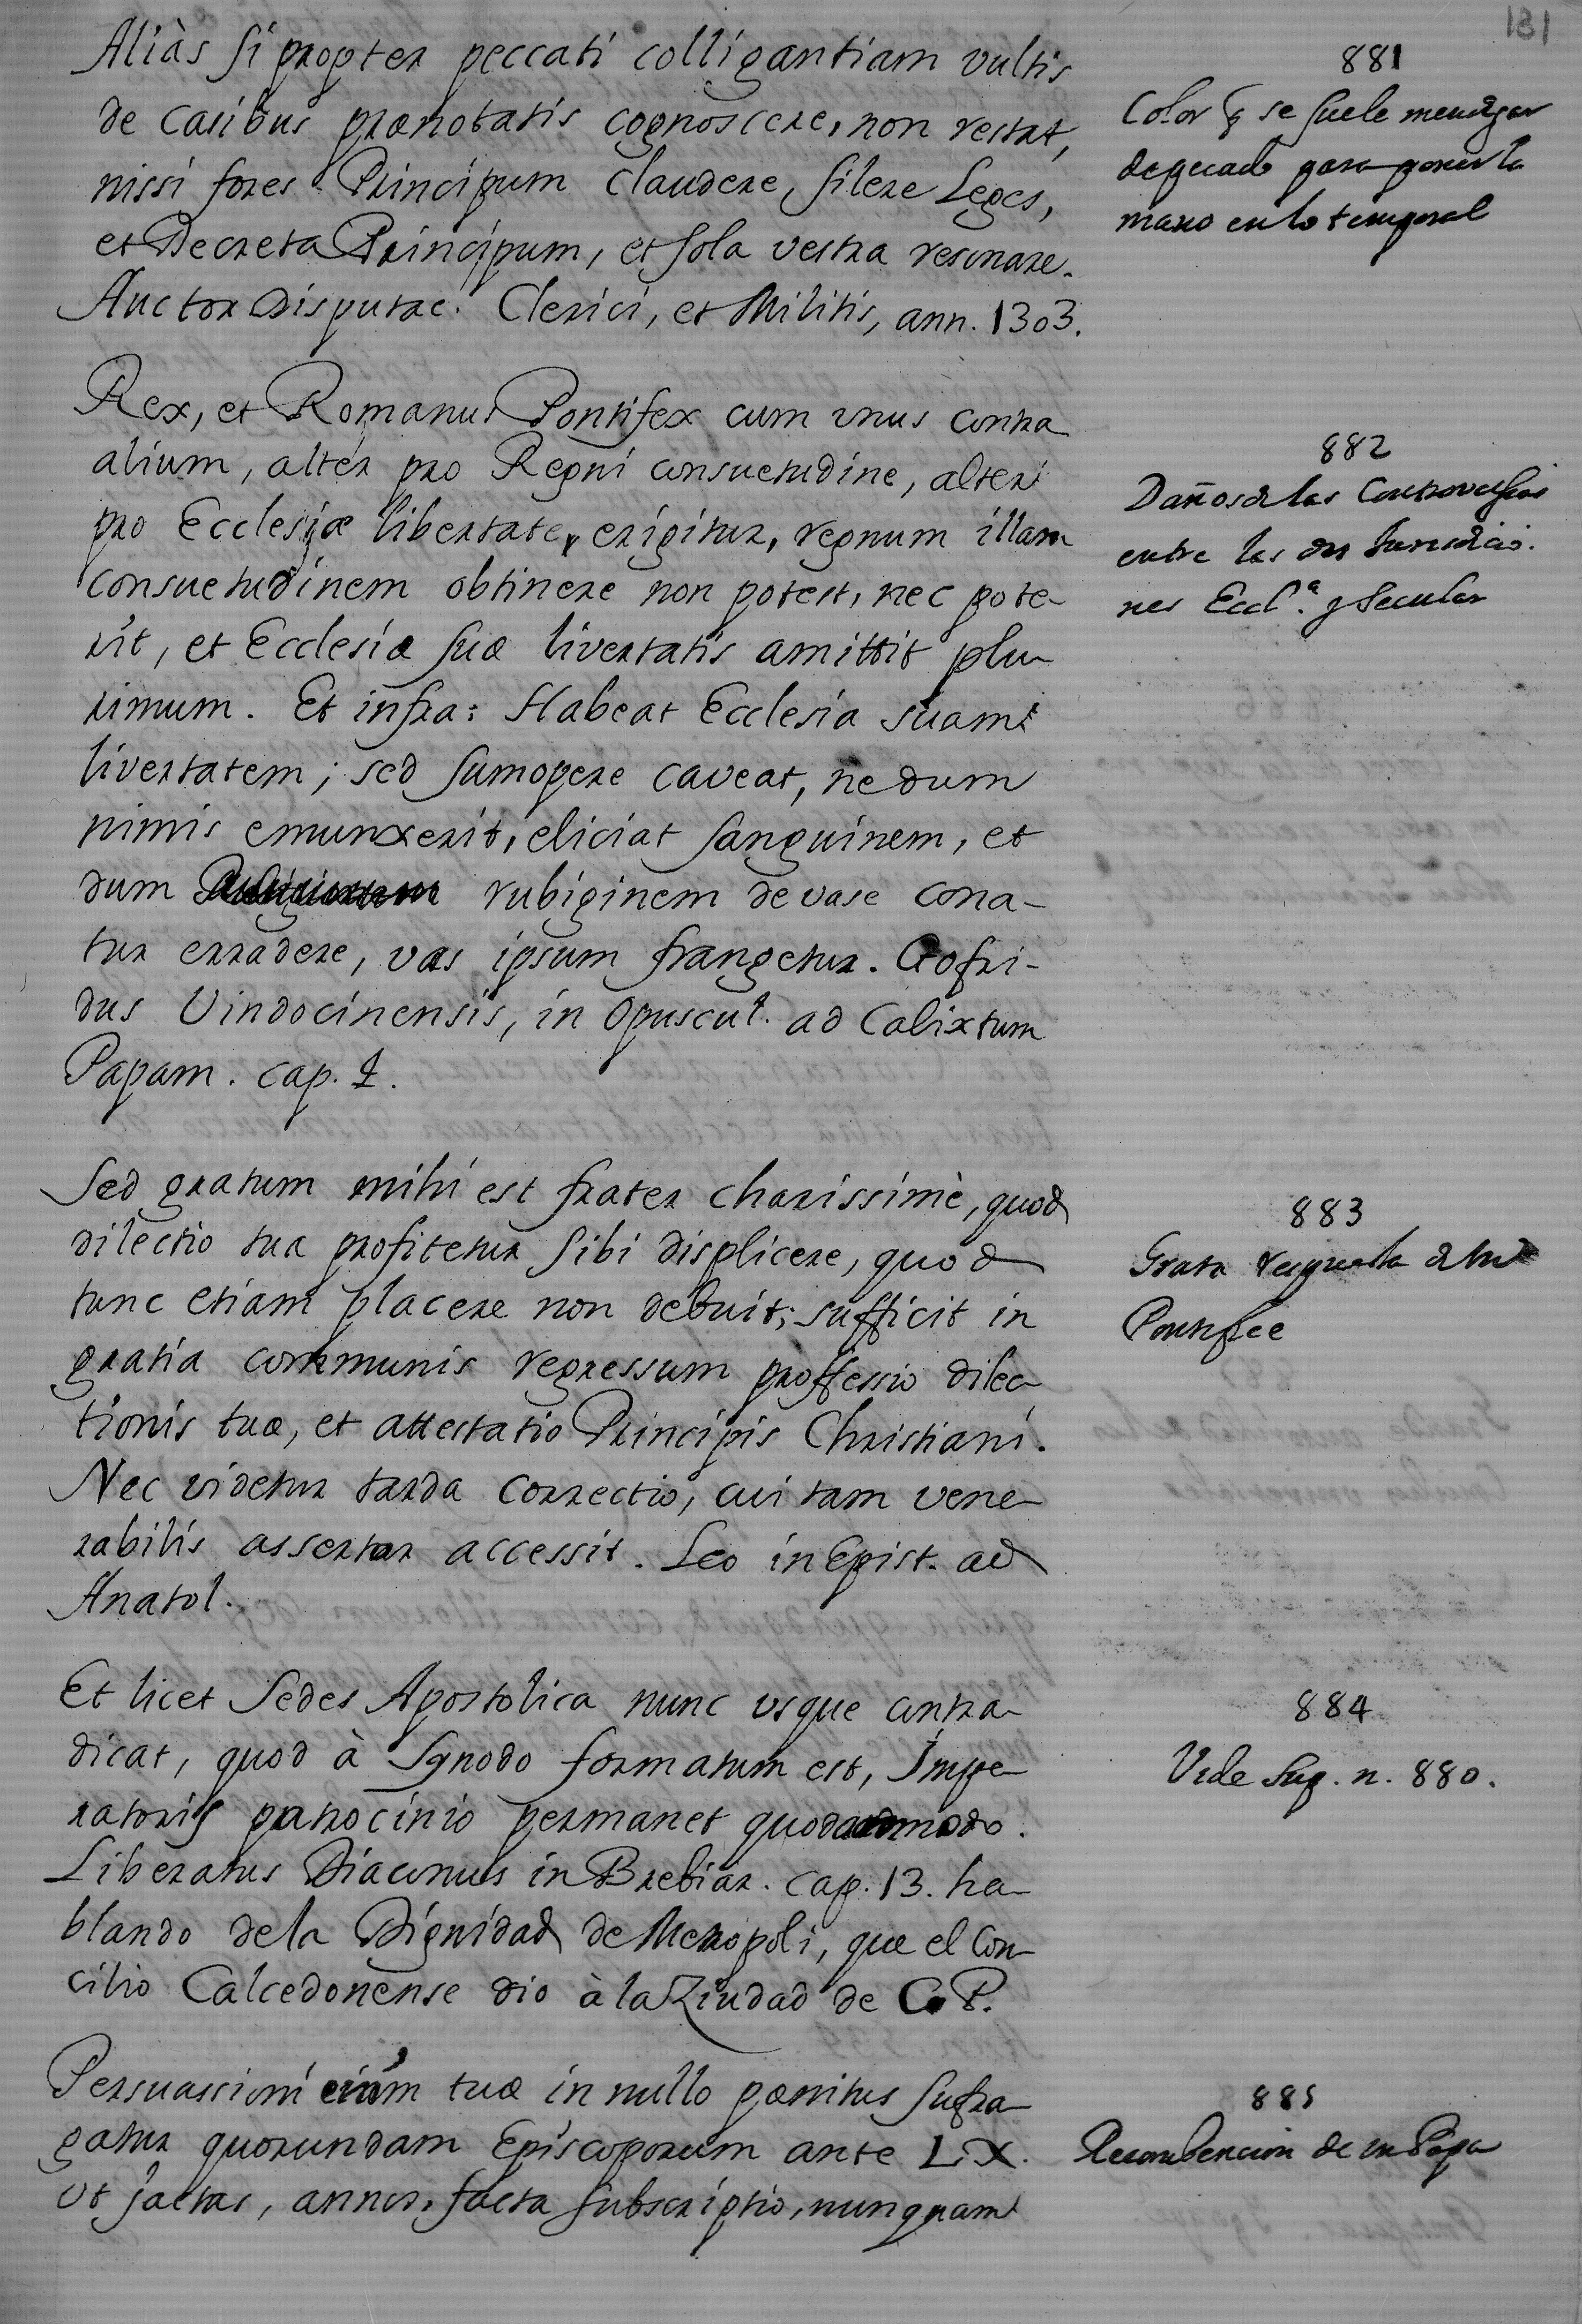 131
Aliàs si propter peccati colligantiam vultis
de casibus prænotatis cognoscere, non restat,
nissi fores Principum claudere, silere Leges,
et Decreta Principum, et sola vestra resonare.
Auctor Disputac. Clerici, et Militis, ann. 1303.
881
Color q se suele mendigar
de pecado para poner la
mano en lo temporal
Rex, et Romanus Pontifex cum unus contra
alium, alter pro Regni consuetudine, alter
pro Ecclesiæ libertate, erigitur, regnum illam
consuetudinem obtinere non potest, nec pote-
rit, et Ecclesia suæ livertatis amittit plu-
rimum. Et infra: Habeat Ecclesia suam
livertatem; sed sumopere caveat, ne dum
nimis emunxerit, eliciat sanguinem, et
dum rubiginem de vase cona-
tur erradere, vas ipsum frangetur. Gofri-
dus Vindocinensis, in Opuscul. ad Calixtum
Papam. cap.
882
Daños de las Controversias
entre las dos Jurisdicio-
nes Eccl.ª y Secular
Sed gratum mihi est frater charissimè, quod
dilectio tua profitetur sibi displicere, quod
tunc etiam placere non debuit; sufficit in
gratia communis regressum proffessio dilec-
tionis tuæ, et attestatio Principis Christiani.
Nec videtur tarda correctio, cui tam vene-
rabilis assertor accessit. Leo in Epist. ad
Anatol.
883
Grata respuesta de un
Pontifice
Et licet Sedes Apostolica nunc usque contra-
dicat, quod à Synodo formatum est, Impe-
ratoris patrocinio permanet quodammodo.
Liberatus Diaconus in Brebiar. cap. 13. ha-
blando de la Dignidad de Metropoli, que el Con-
cilio Calcedonense dio à la Ziudad de C. P.
884
Vide sup. n. 880.
Persuassioni enim tuæ in nullo pænitus sufra-
gatur quorundam Episcoporum ante LX.
ut jactas, annos, facta subscriptio, nunquam
885
Reconbencion de un Papa